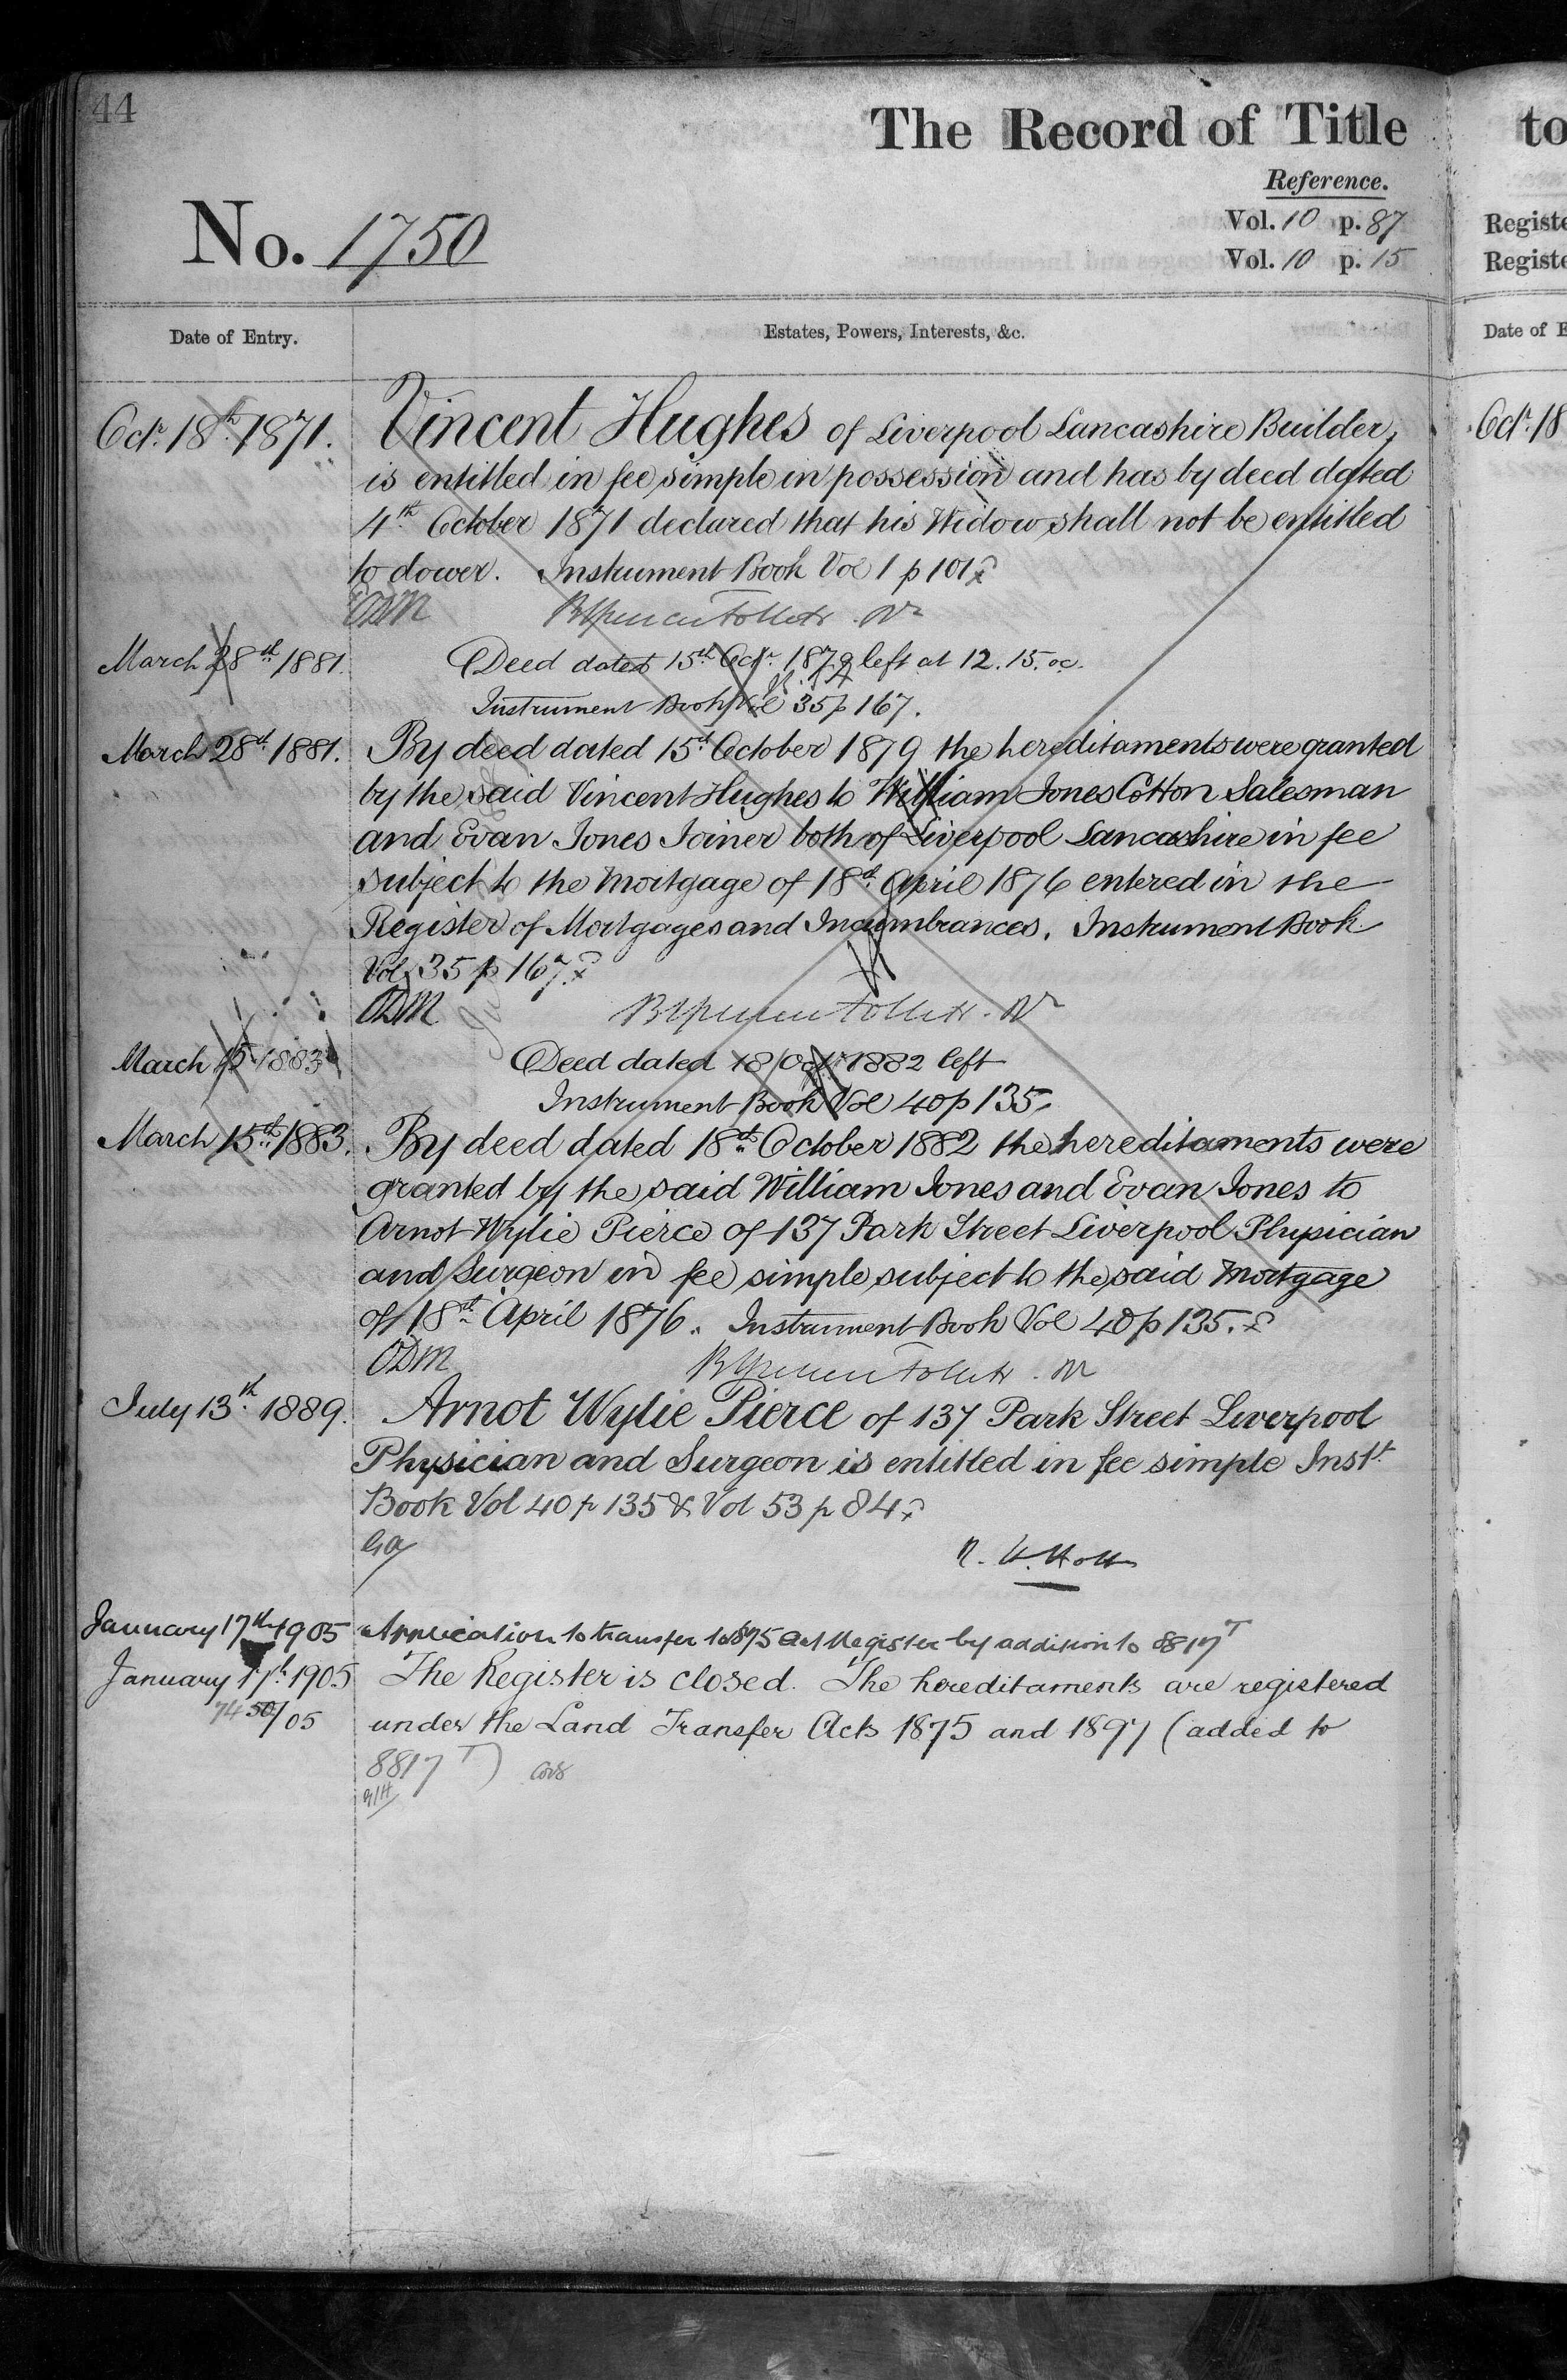 44
The Record of Title
to
Reference.
No. 1750
Vol. 10 p. 87
Registe
Vol. 10 p. 15
Registe
Date of Entry.
Estates, Powers, Interests, &c.
Date of E
Octr. 18th 1871.
Vincent Hughes of Liverpool Lancashire Builder,
Octr. 18
is entitled in fee simple in possession and has by deed dated
4th October 1871 declared that his Widow shall not be entitled
to dower. Instrument Book Vol 1 p 101
ODM
March 28th 1881.
Deed dated 15th Octr. 1879 left at 12.15. oc.
Instrument Book Vol 35 p 167.
March 28th 1881.
By deed dated 15th October 1879 the hereditaments were granted
by the said Vincent Hughes to William Jones Cotton Salesman
and Evan Jones Joiner both of Liverpool Lancashire in fee
subject to the Mortgage of 18th April 1876 entered in the
Register of Mortgages and Incumbrances. Instrument Book
Vol. 35 p 167.
ODM
March 15 1883
Deed dated 18 Octr 1882 left
Instrument Book Vol 40 p 135.
March 15th 1883.
By deed dated 18th October 1882 the hereditaments were
granted by the said William Jones and Evan Jones to
Arnot Wylie Pierce of 137 Park Street Liverpool Physician
and Surgeon in fee simple subject to the said Mortgage
of 18th April 1876. Instrument Book Vol 40 p 135.
ODM
July 13th 1889.
Arnot Wylie Pierce of 137 Park Street Liverpool
Physician and Surgeon is entitled in fee simple Instt
Book Vol 40 p 135 & Vol 53 p 84
January 17th 1905
Application to transfer to 1875 Act Register by addition to 8817T
January 17th 1905
The Register is closed. The hereditaments are registered
7450/05
under the Land Transfer Acts 1875 and 1897 (added to
8817T)